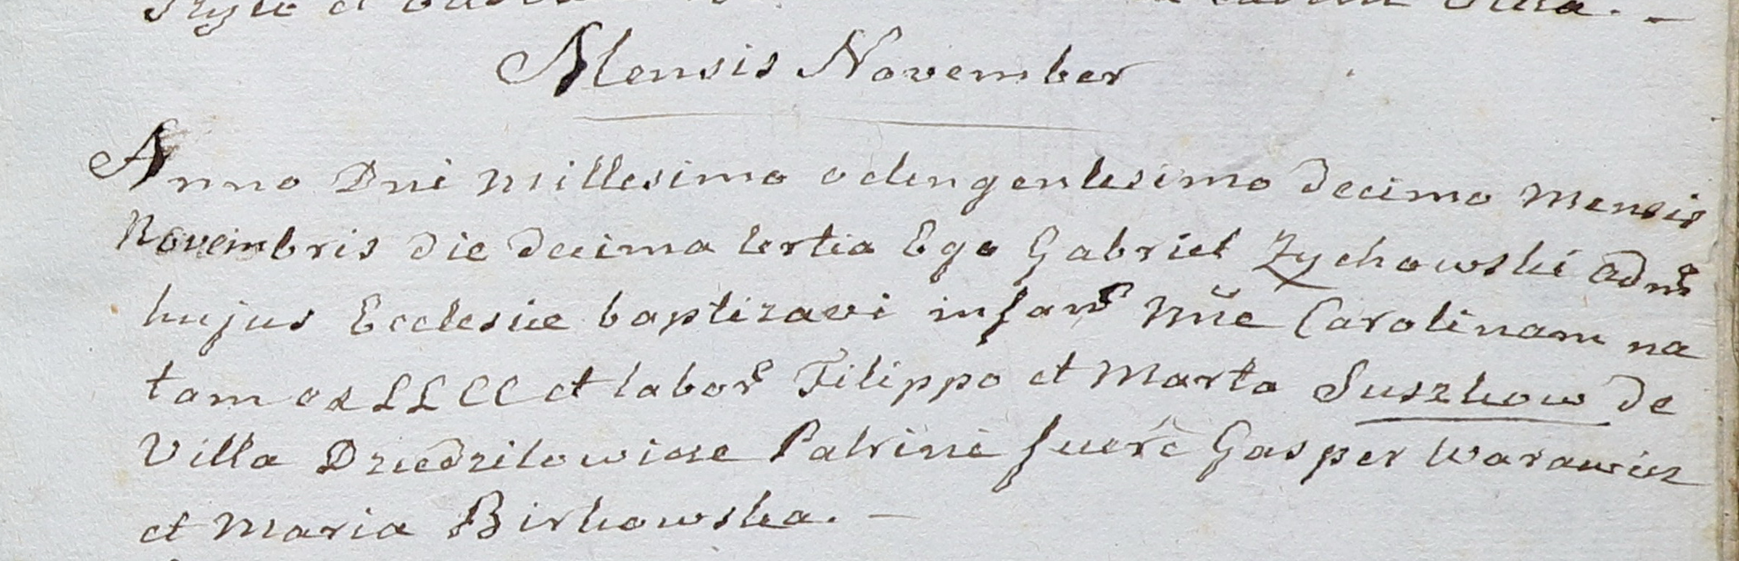 Mensis November
Anno Dni Millesimo octengentesimo decimo Mensis
Novembris die decima tertia Ego Gabriel Zychowski adm̃
hujus Ecclesiæ baptizavi infant̃ nñe Carolinam na
tam ex LLCC et labor̃ Filippo et Marta Suszkow de
Villa Dziedzilowicze Patrini fuerẽ Gasper Warawicz
et Maria Birkowska. —